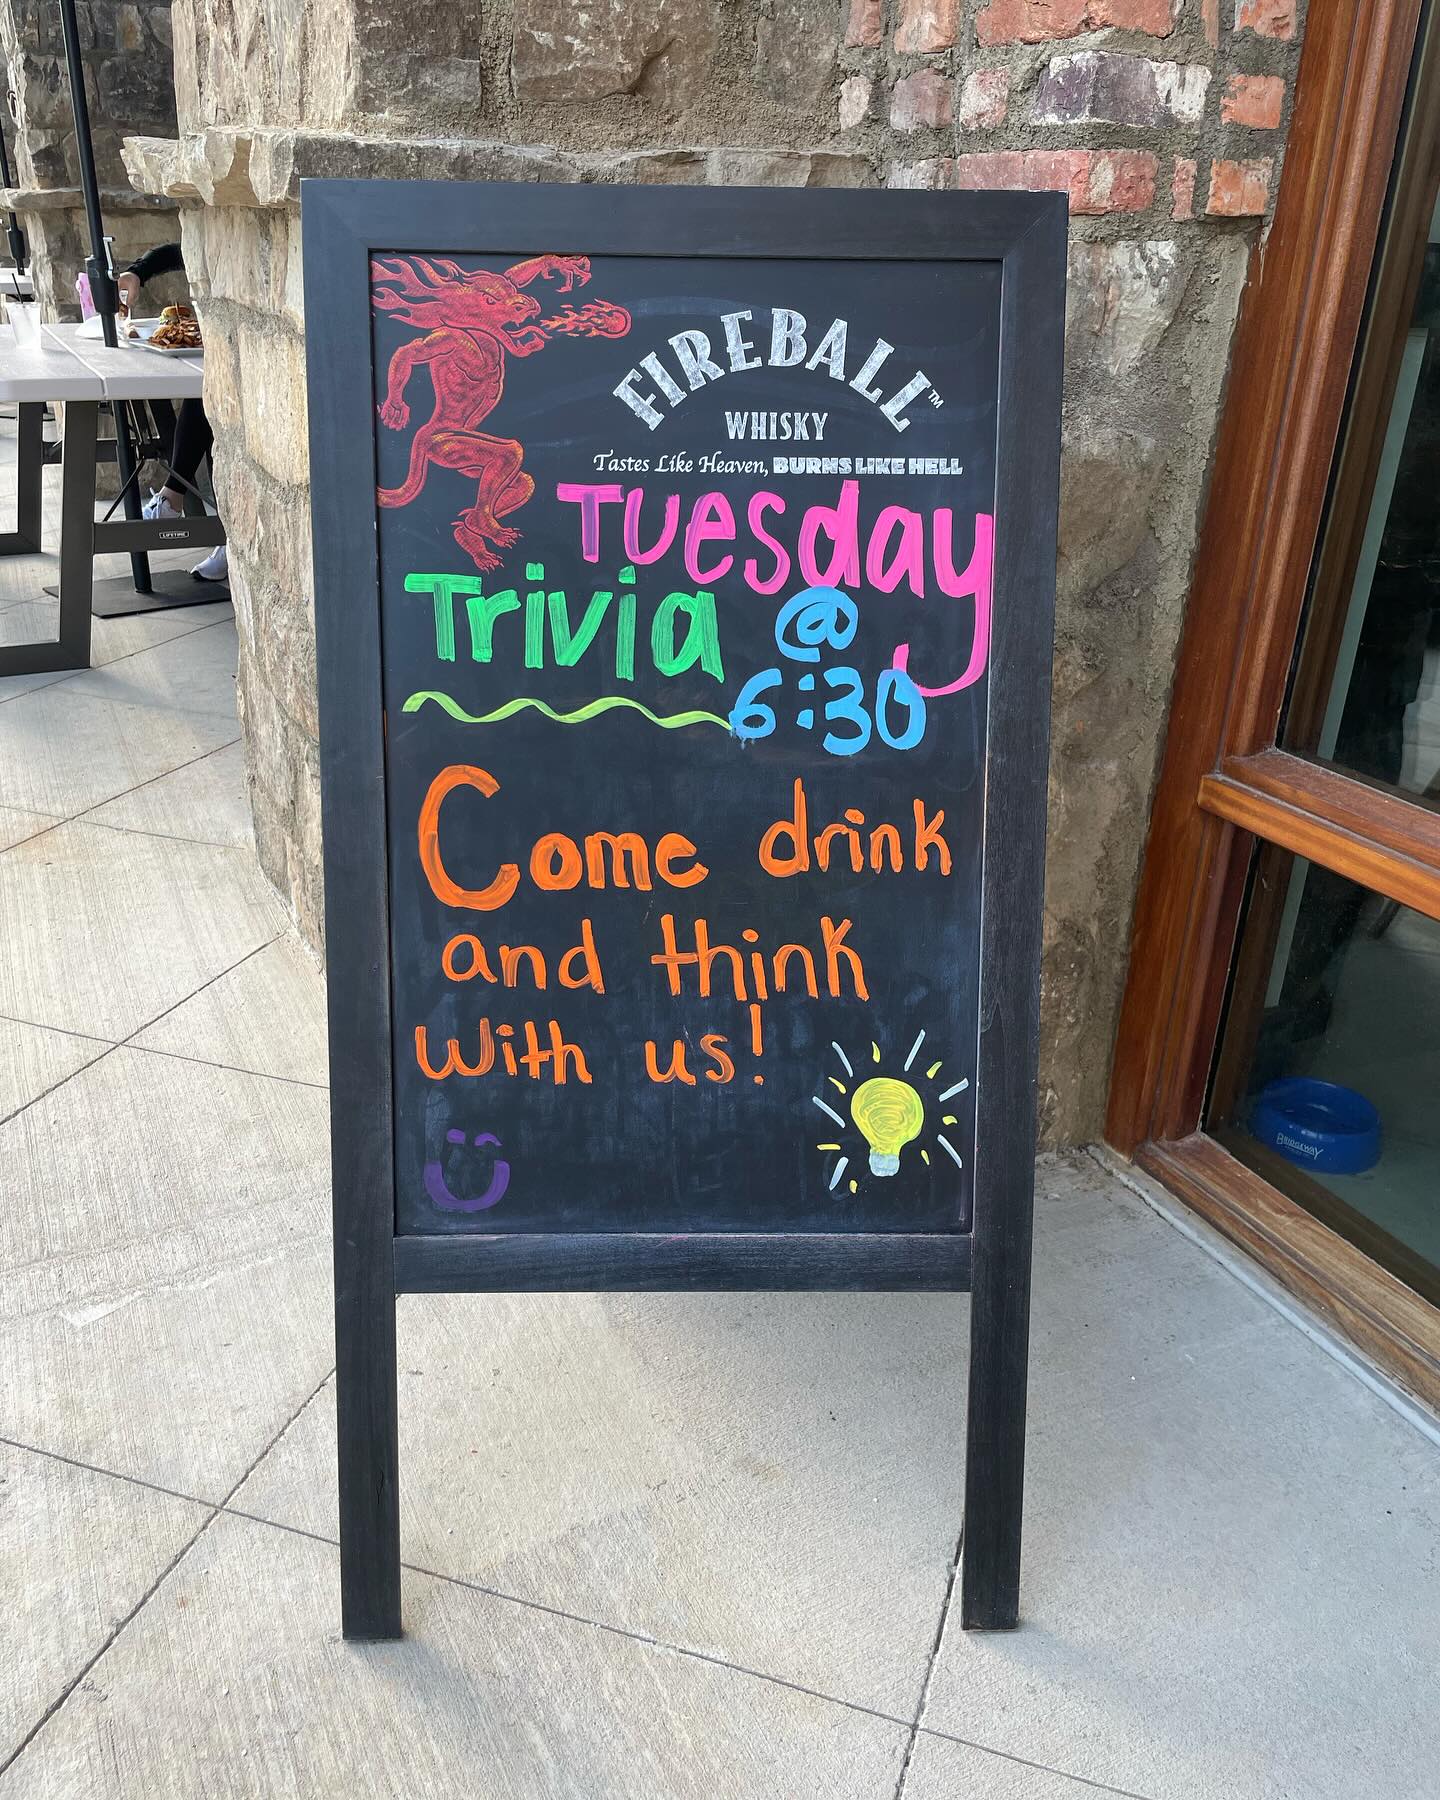 FIREBALL™
WHISKY
Tastes Like Heaven, BURNS LIKE HELL
Tuesday
Trivia @
6:30
Come drink
and think
with us!
LIFETIME
BRIDGEWAY